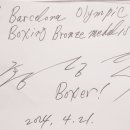 Barcelona Olympic
Boxing Bronze medalis
Boxer!
2014. 4. 21.